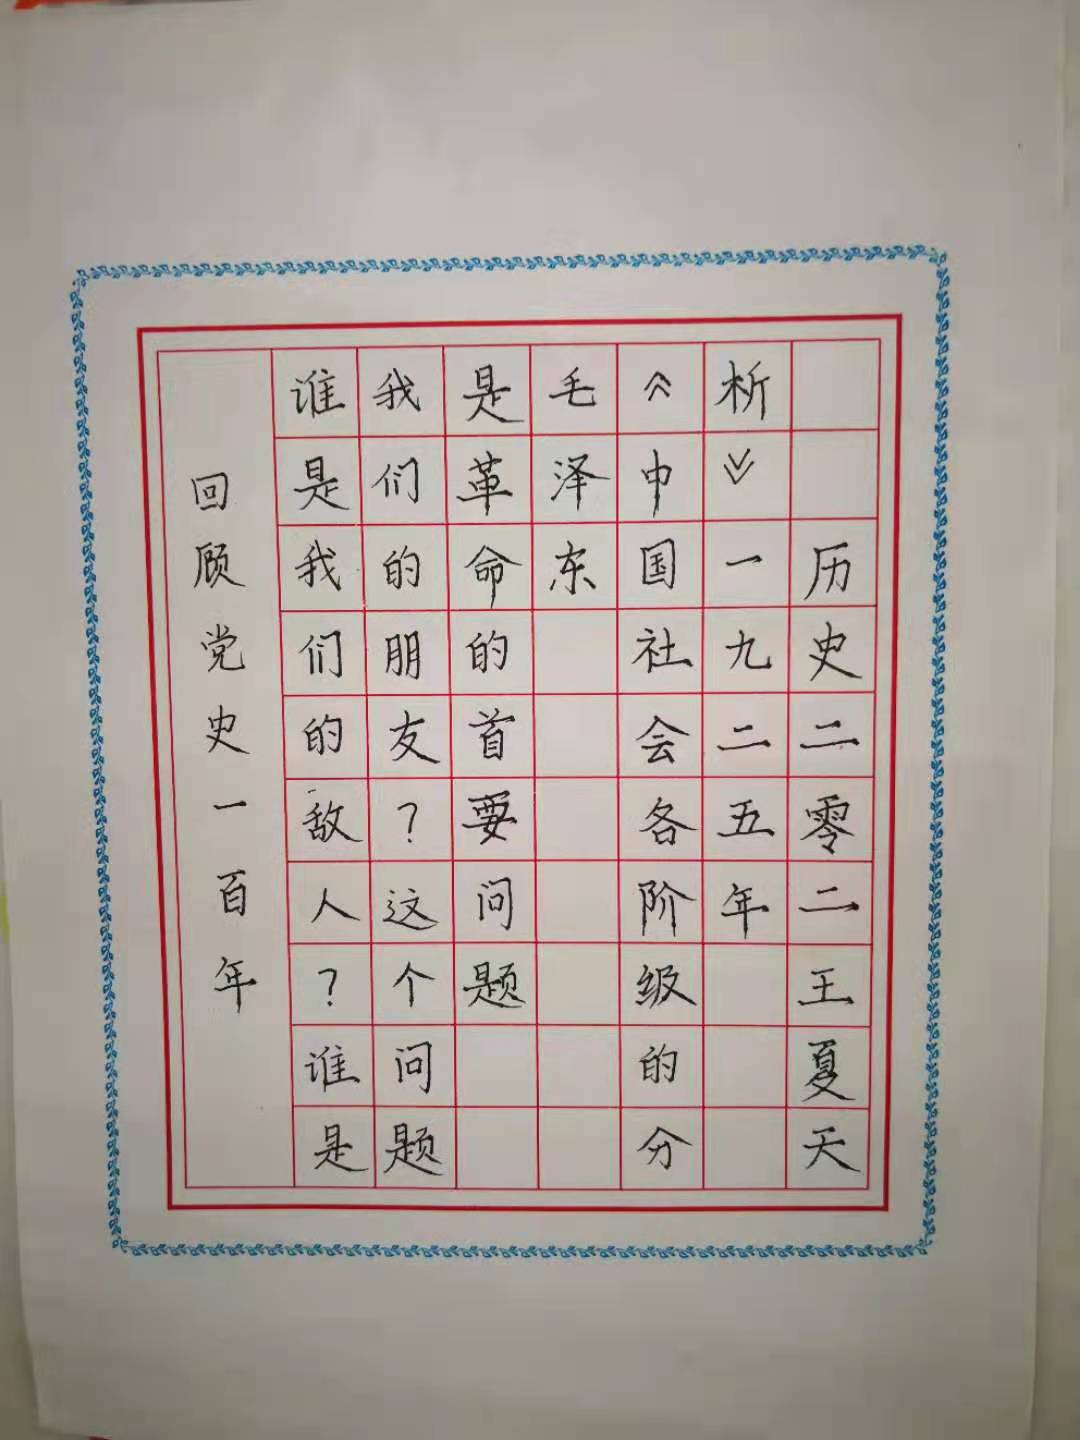 回顾党史一百年
谁是我们的敌人？谁是
我们的朋友？这个问题
是革命的首要问题
毛泽东
《中国社会各阶级的分
析》一九二五年
历史二零二王夏天